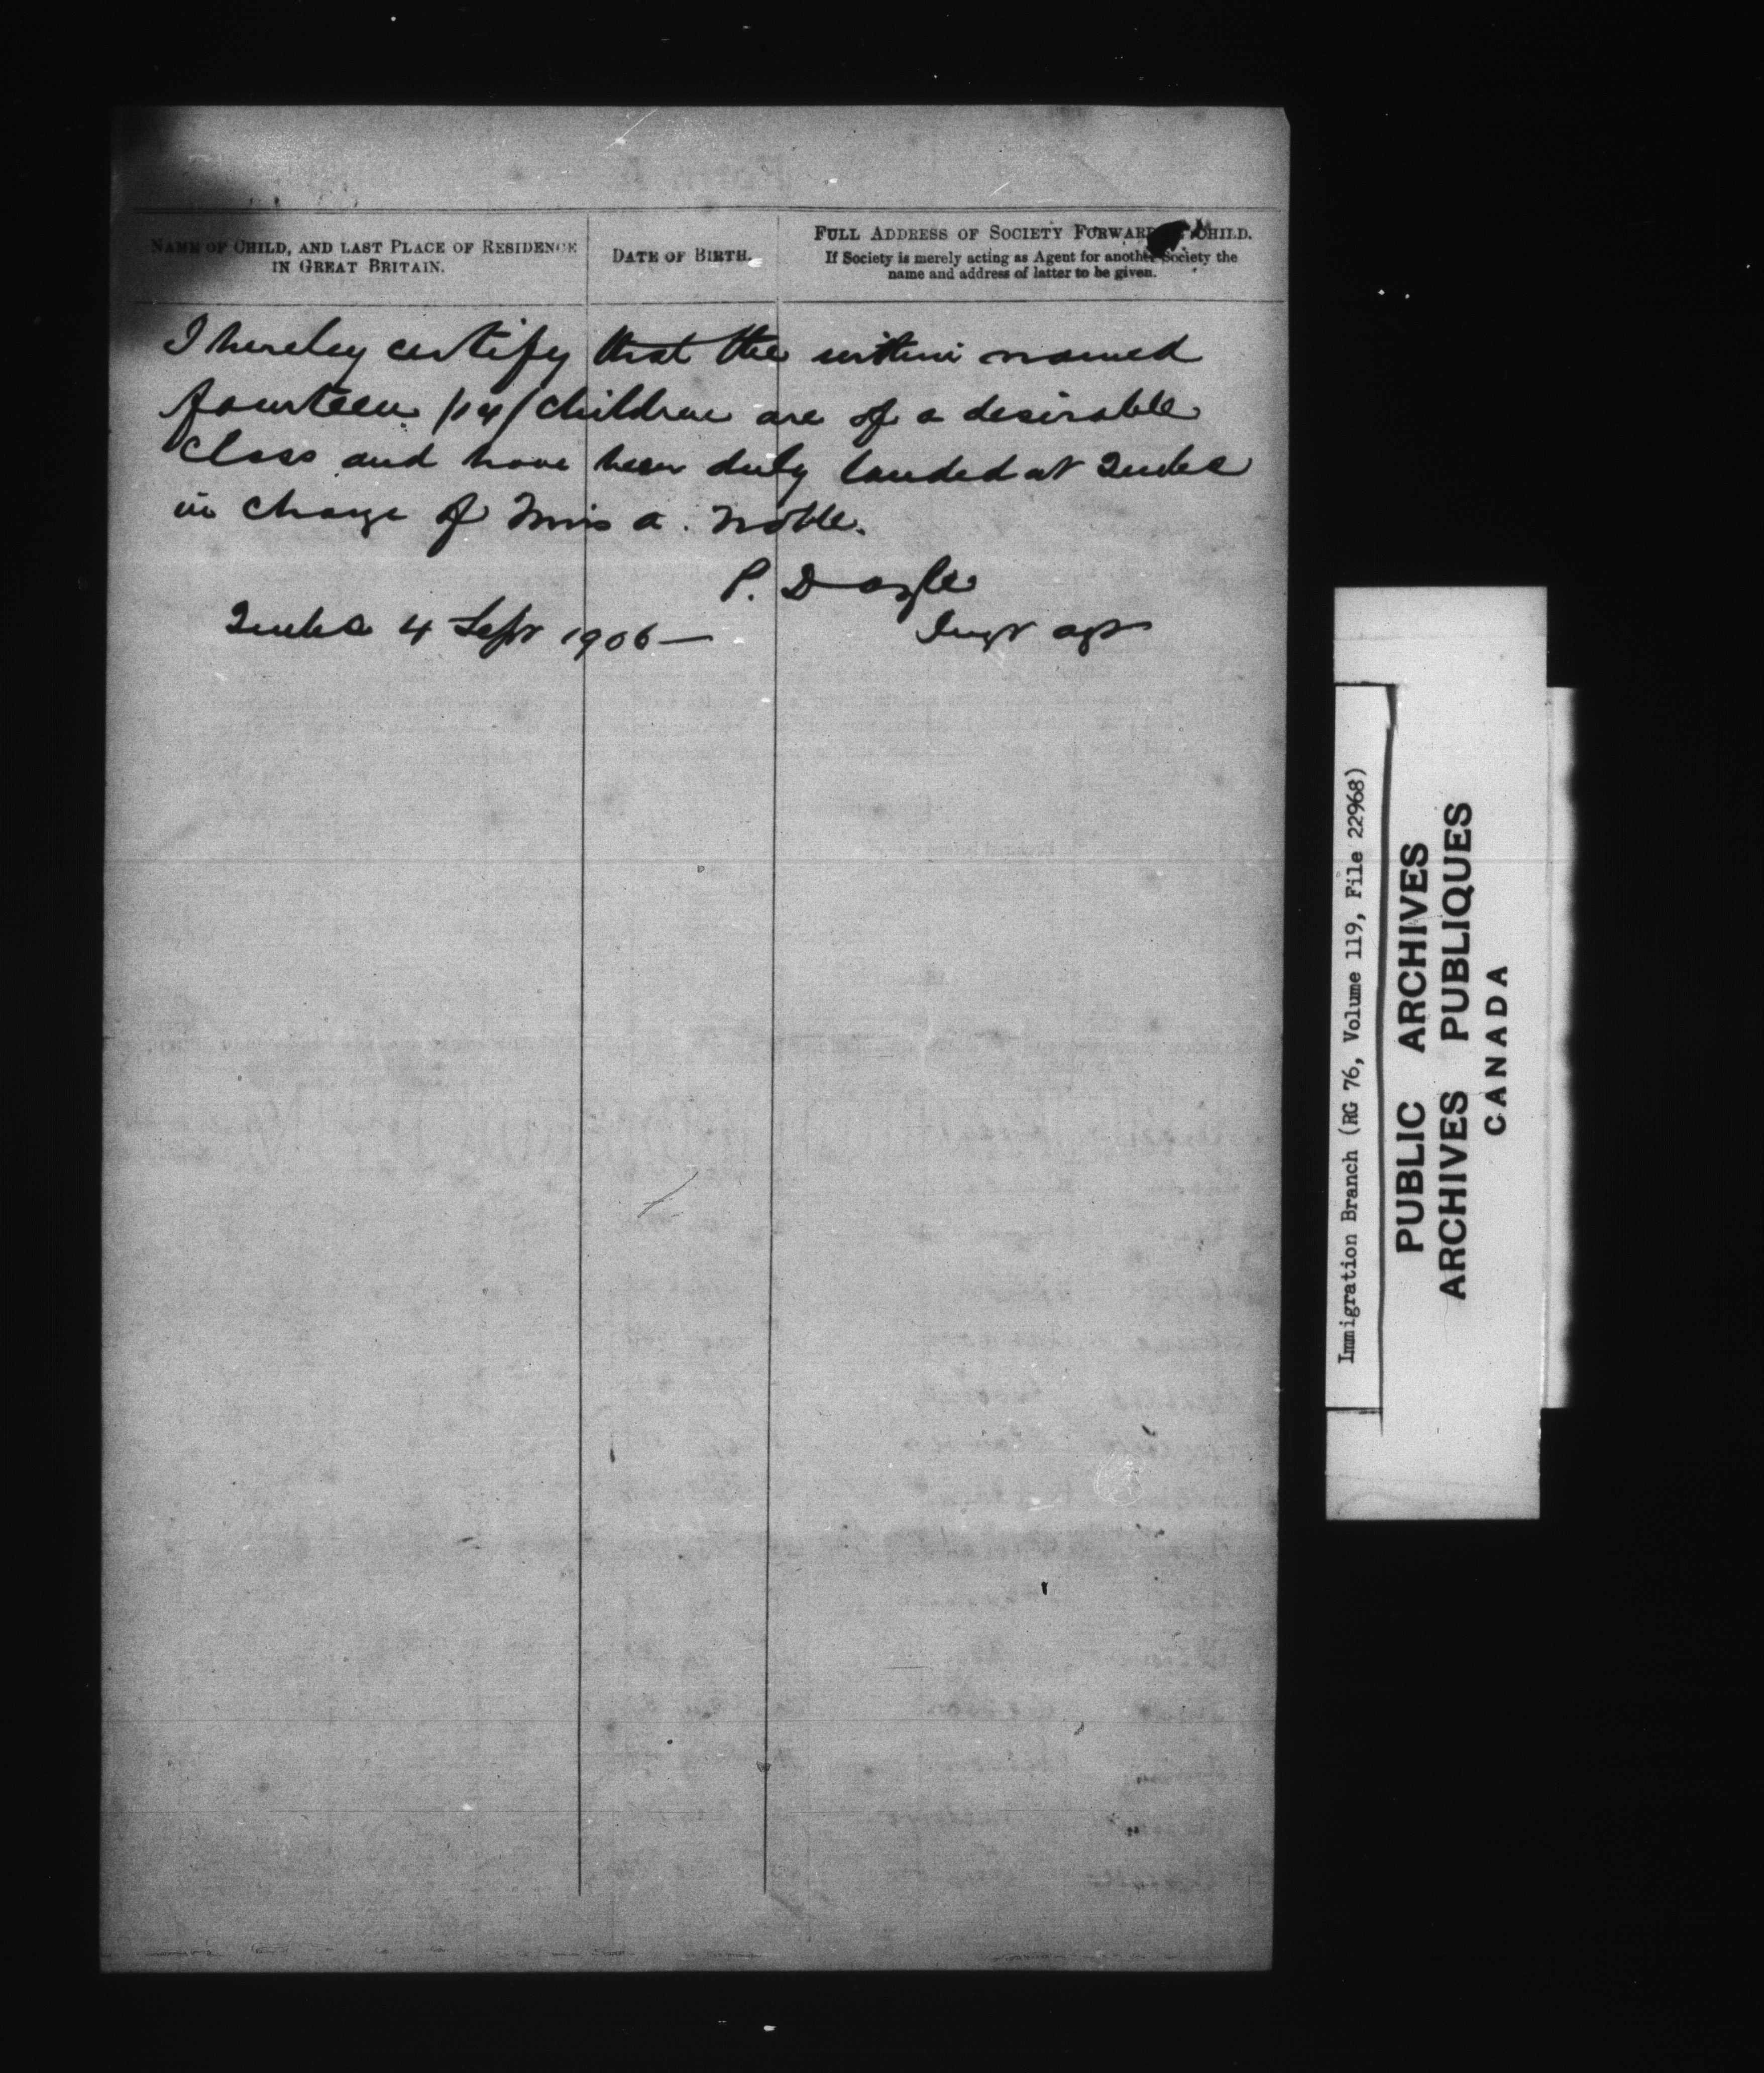 NAME OF CHILD, AND LAST PLACE OF RESIDENCE
IN GREAT BRITAIN.
DATE OF BIRTH.
FULL ADDRESS OF SOCIETY FORWARDING CHILD.
If Society is merely acting as Agent for another Society the
name and address of latter to be given.
I hereby certify that the within named
fourteen /14/ children are of a desirable
Class and have been duly landed at Quebec
in charge of Miss A. Noble.
P. Doyle
Quebec 4 Sept 1906 — Imgr agt
Immigration Branch (RG 76, Volume 119, File 22968)
PUBLIC ARCHIVES
ARCHIVES PUBLIQUES
CANADA